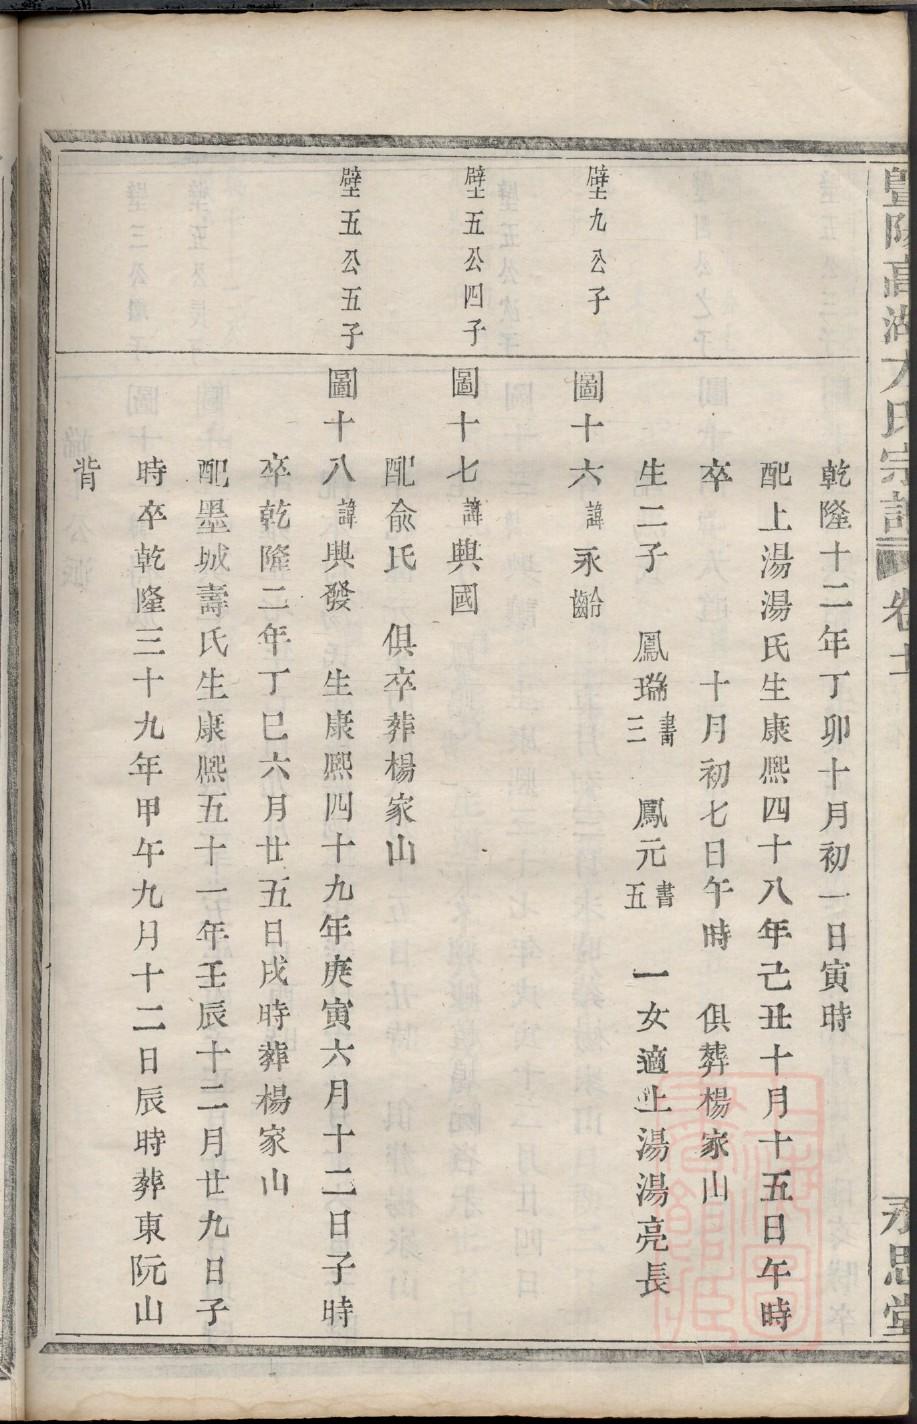 暨陽高湖方氏宗譜 卷十 永思堂
乾隆十二年丁卯十月初一日寅時
配上湯湯氏生康熙四十八年己丑十月十五日午時
卒 十月初七日午時 俱葬楊家山
生二子 鳳瑞書三 鳳元書五 一女適上湯湯亮長
璧九公子 圖十六諱永齡
璧五公四子 圖十七諱興國
配俞氏 俱卒葬楊家山
璧五公五子 圖十八諱興發 生康熙四十九年庚寅六月十二日子時
卒乾隆二年丁巳六月廿五日戌時葬楊家山
配墨城壽氏生康熙五十一年壬辰十二月廿九日子
時卒乾隆三十九年甲午九月十二日辰時葬東阮山
背